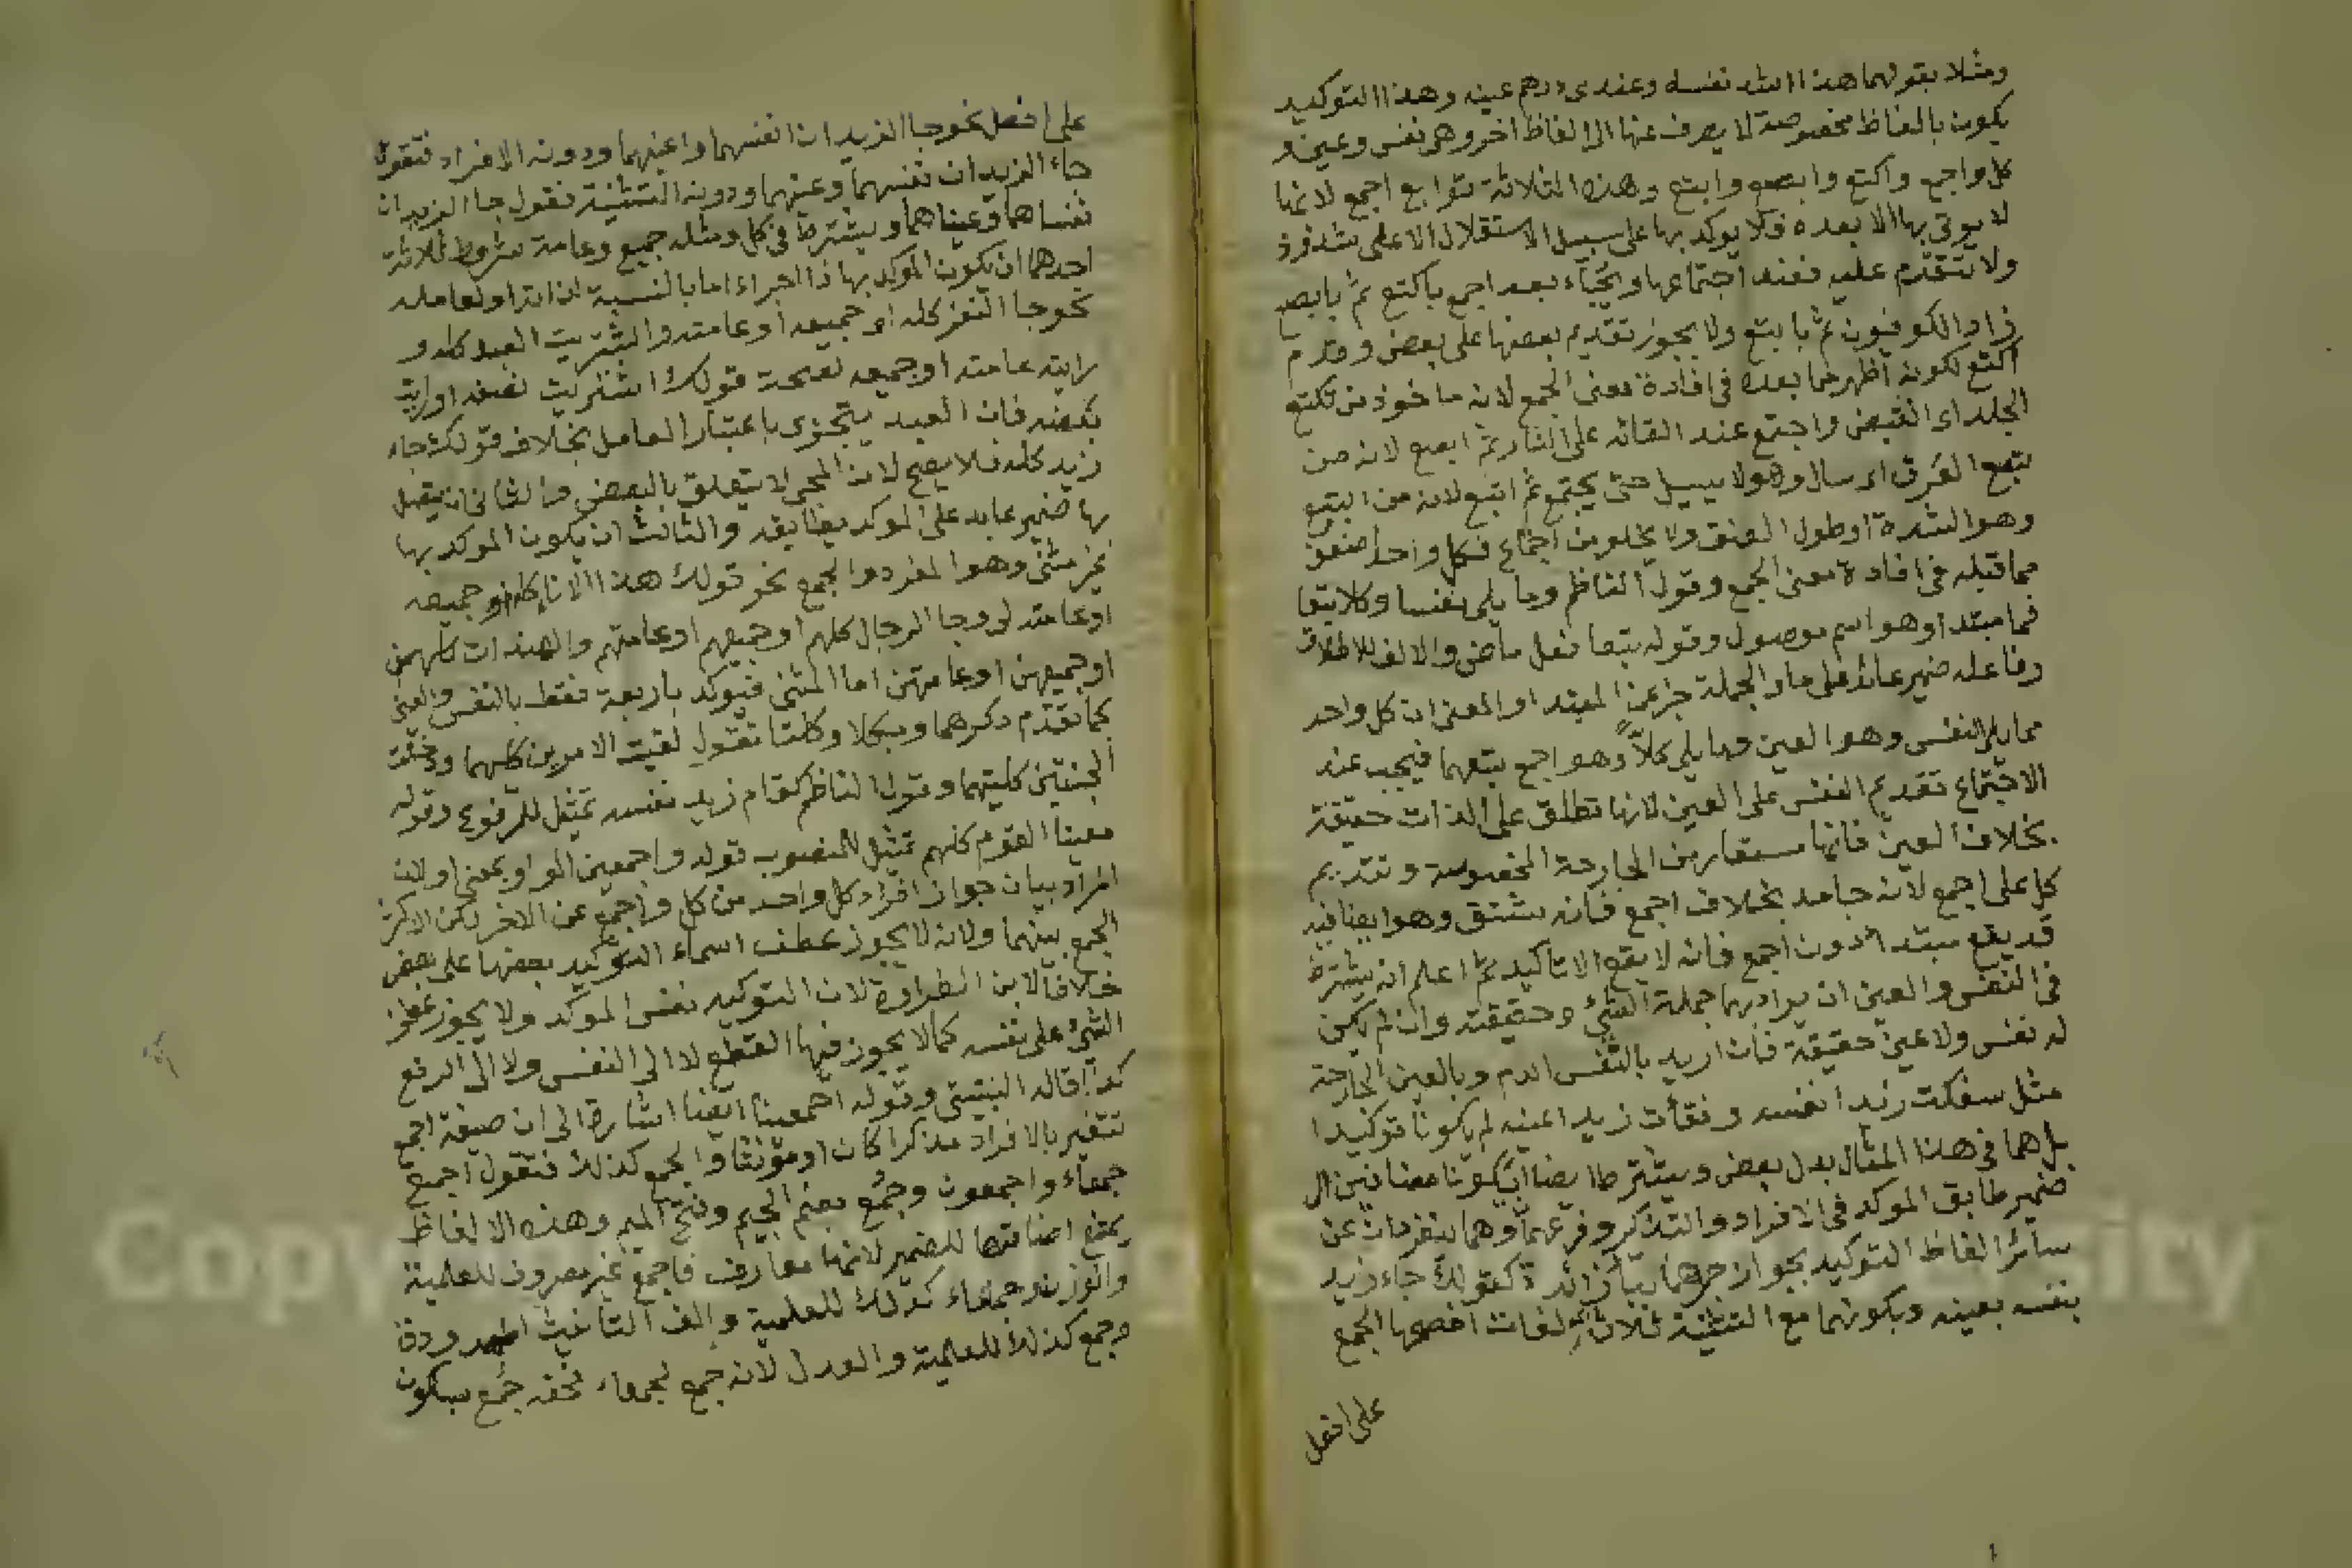 ومثلا بقولهما هذا اسد نفسه وعندى درهم عينه وهذا التوكيد
يكون بالفاظ مخصوصة لا يصرف عنها الى الفاظ اخر وهى نفس وعين و
كل واجمع واكتع وابصع وابتع وهذه الثلاثة توابع اجمع لانها
لا يوتى بها الا بعده فلا يوكد بها على سبيل الاستقلال الا على شذوذ
ولا تتقدم عليه فعند اجتماعها يجاء بعد اجمع باكتع ثم بابصع
زاد الكوفيون ثم بابتع ولا يجوز تقديم بعضها على بعض وقدم
اكتع لكونه اظهر مما بعده فى افادة معنى الجمع لانه ماخوذ من تكتع
الجلد اى انقبض واجتمع عند القائه على النار ثم ابصع لانه من
تبصع العرق اى سال وهو لا يسيل حتى يجتمع ثم ابتع لانه من البتع
وهو الشدة او طول العنق ولا يخلو من اجتماع فكل واحد اضعف
مما قبله فى افادة معنى الجمع وقول الناظم وما يلى نفسا وكلا يتبعا
فما مبتدا وهو اسم موصول وقوله يتبعا فعل ماض والالف للاطلاق
وفاعله ضمير عائد على ما والجملة خبر عن المبتدا والمعنى ان كل واحد
مما يلى النفس وهو العين ومما يلى كلاً وهو اجمع يتبعهما فيجب عند
الاجتماع تقديم النفس على العين لانها تطلق على الذات حقيقة
بخلاف العين فانها مستعار من الجارحة المخصوصة وتقديم
كل على اجمع لانه جامد بخلاف اجمع فانه مشتق وهو ايضا فيه
قد يقع مبتدا دون اجمع فانه لا يقع الا تاكيد ثم اعلم انه يشترط
فى النفس والعين ان يراد بهما جملة الشئ وحقيقته وان لم يكن
له نفس ولا عين حقيقة فان اريد بالنفس الدم وبالعين الجارحة
مثل سفكت زيدا نفسه وفقأت زيدا عينه لم يكونا توكيدا
بل هما فى هذا المثال بدل بعض ويشترط ايضا ان يكونا مضافين الى
ضمير طابق الموكد فى الافراد والتذكير وفرعهما وهما ينفردان عن
سائر الفاظ التوكيد بجواز جرهما بباء زائدة كقولك جاء زيد
بنفسه بعينه وبكونهما مع التثنية ثلاث لغات افصحها الجمع
على افعل
على افعل نحو جا الزيدان انفسهما واعينهما ودونه الافراد فتقول
جاء الزيدان نفسهما وعينهما ودونه التثنية فتقول جا الزيدان
نفساهما وعيناهما ويشترط فى كل ومثله جميع وعامة شروط ثلاثة
احدها ان يكون الموكد بها ذا اجزاء اما بالنسبة لذاته او لعامله
نحو جا النفر كله او جميعه او عامته واشتريت العبد كله و
رايته عامته او جميعه لصحة قولك اشتريت نصفه او رايت
بعضه فان العبد يتجزى باعتبار العامل بخلاف قولك جاء
زيد كله فلا يصح لان المجى لا يتعلق بالبعض والثانى ان يتصل
بها ضمير عايد على الموكد يطابقه والثالث ان يكون الموكد بها
غير مثنى وهو المفرد والجمع نحو قولك هذا الاناء كله او جميعه
او عامته لى وجا الرجال كلهم او جميعهم او عامتهم والهندات كلهن
او جميعهن او عامتهن اما المثنى فيوكد باربعة فقط بالنفس والعين
كما تقدم ذكرهما وبكلا وكلتا تقول لقيت الاميرين كليهما ودخلت
الجنتين كلتيهما وقول الناظم كقام زيد نفسه تمثيل للمرفوع وقوله
معينا القوم كلهم تمثيل للمنصوب قوله واجمعين الواو بمعنى او لان
المراد بيان جواز افراد كل واحد من كل واجمع عن الاخر لكن الاكثر
الجمع بينهما ولانه لا يجوز عطف اسماء التوكيد بعضها على بعض
خلافا لابن الطراوة لان التوكيد نفس الموكد ولا يجوز عطف
الشئ على نفسه كما لا يجوز فيها القطع لا الى النصب ولا الى الرفع
كذا قاله النبتيتى وقوله اجمعينا ايضا اشارة الى ان صيغة اجمع
تتغير بالافراد مذكرا كان او مؤنثا والجمع كذلك فتقول اجمع
جمعاء واجمعون وجُمَع بضم الجيم وفتح الميم وهذه الالفاظ
يمتنع اضافتها للضمير لانها معارف فاجمع غير مصروف للعلمية
والوزن وجمعاء كذلك للعلمية والف التانيث الممدودة
وجمع كذلك للعلمية والعدل لانه جمع لجمعاء فحقه جُمْع بسكون